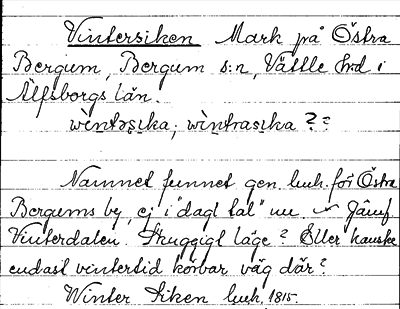 Vintersiken Mark på Östra
Bergum, Bergum s:n, Vättle hrd i
Älfsborgs län.
wìntəsika; wìntrasika ??
Namnet funnet gen. lmh. för Östra
Bergums by, ej i "dagl. tal" nu. Jämf.
Vinterdalen. Skuggigt läge? Eller kanske
endast vintertid körbar väg där?
Winter Siken lmh. 1815.